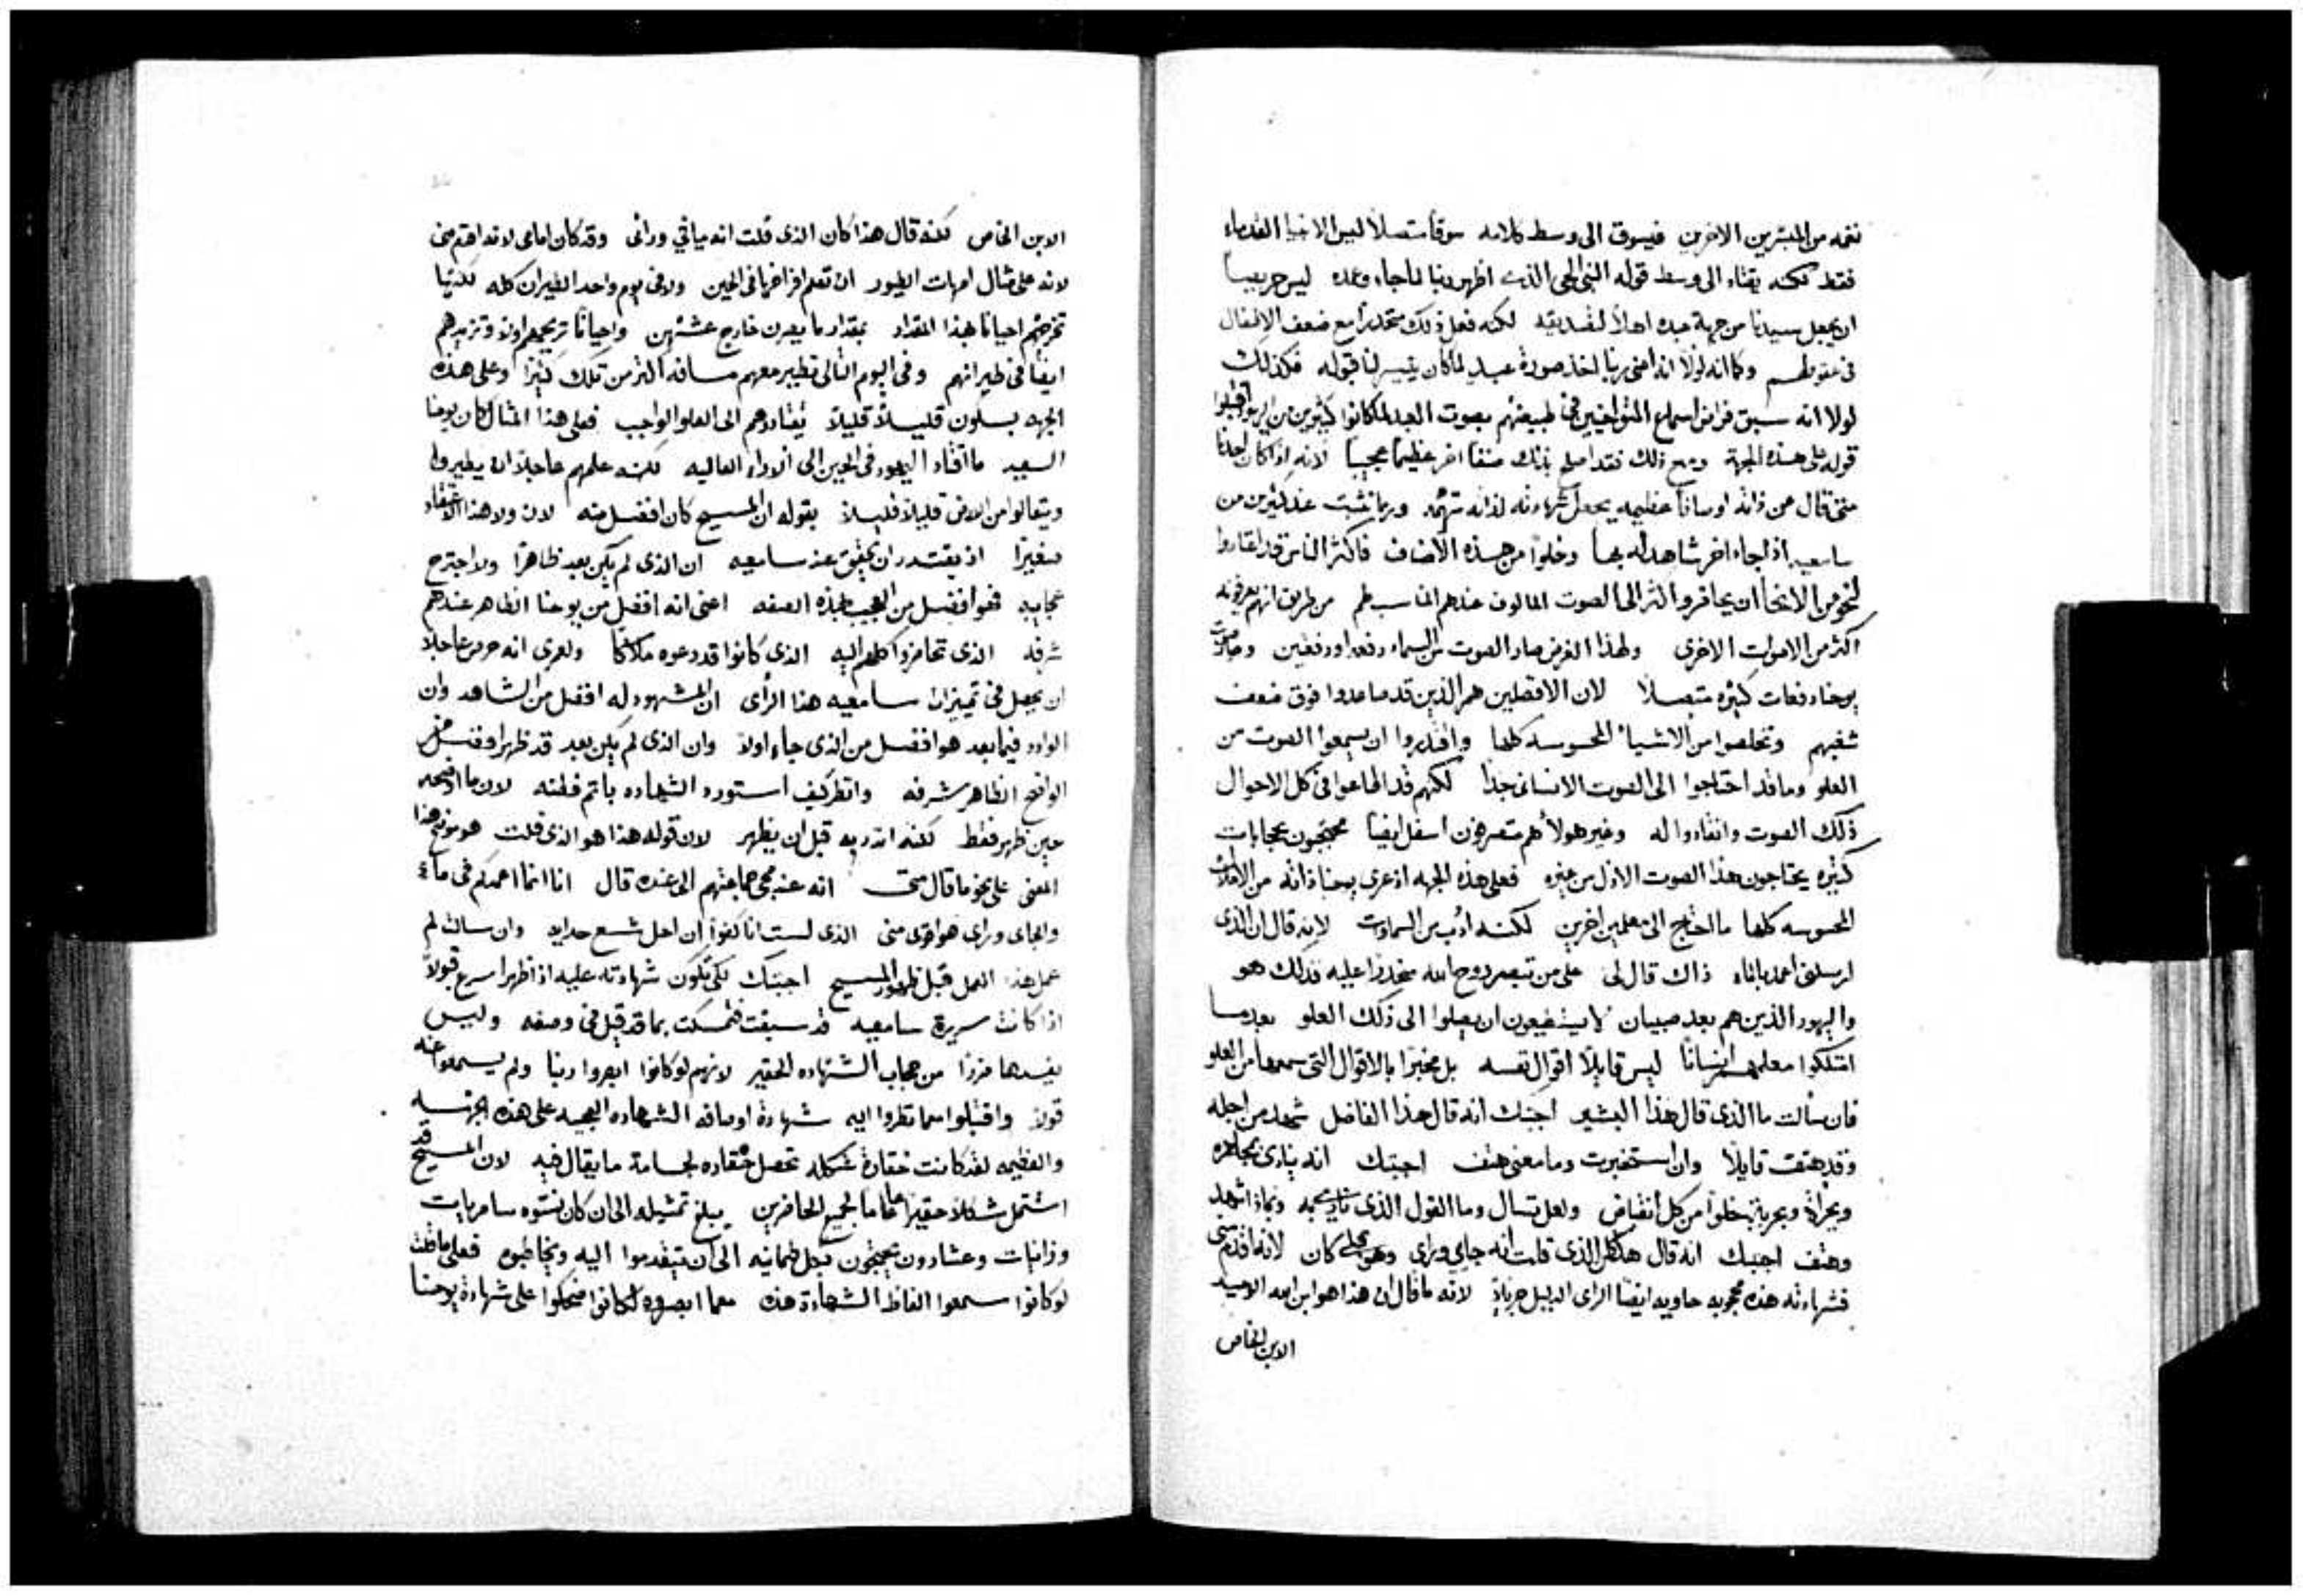 نغمه من المبشرين الاخرين فيسوق الى وسط كلامه سوقا متصلا ليس الانبيا القدماء
فقط لكنه يقتاد الى وسط قوله النبي الحي الذي اظهر ربنا لما جاء وعمده ليس حريصا
ان يجعل سيدنا من جهة عبده اهلا لتصديقه لكنه فعل ذلك متحدرا مع ضعف الاطفال
في عقولهم وكما انه لولا انه اعني ربنا اخذ صورة عبد لما كان يتيسر لنا قبوله فكذلك
لولا انه سبق فراض اسماع المتواخيين في طبيعتهم بصوت العبد لما كانوا كثيرين من اليهود اقتبلوا
قوله على هذه الجهة ومع ذلك فقد اصلح بذلك صنفا اخر عظيما عجيبا لانه اذا كان احدنا
متى قال عن ذاته اوصافا عظيمه يجعل شهادته لذاته متهمه وربما تثبت عند كثيرين من
سامعيه اذا جاء اخر شاهد له بها وخلوا من هذه الاصناف فاكثر الناس قد اعتادوا
لنحو من الانحا ان يحاضروا اكثر الى الصوت المالوف عندهم المناسب لهم من طريق انهم يعرفونه
اكثر من الاصوات الاخرى ولهذا الغرض صار الصوت من السماء دفعه او دفعتين وصار صوت
يوحنا دفعات كثيره متصلا لان الافضلين هم الذين قد صاعدوا فوق ضعف
شعبهم وتخلصوا من الاشيا المحسوسه كلها واقتدروا ان يسمعوا الصوت من
العلو وما قد احتاجوا الى الصوت الانساني جدا لكنهم قد اطاعوا في كل الاحوال
ذلك الصوت وانقادوا له وغير هولا هم متصرفون اسفل ايضا محتجبون بحجابات
كثيره يحتاجون هذا الصوت الاذل من غيره فعلى هذه الجهه اذ عرى يوحنا ذاته من الافات
المحسوسه كلها ما احتاج الى معلمين اخرين لكنه ادب من السماوات لانه قال ان الذي
ارسلني اعمد بالماء ذاك قال لي على من تبصر روح الله منحدرا عليه فذلك هو
واليهود الذين هم بعد صبيان لا يستطيعون ان يصلوا الى ذلك العلو بعدما
امتلكوا معلمهم انسانا ليس قايلا اقوال نفسه بل مخبرا بالاقوال التي سمعها من العلو
فان سالت ما الذي قال هذا البشير اجبتك انه قال هذا الفاضل شهد من اجله
وقد هتف قايلا وان استخبرت وما معنى هتف اجبتك انه ينادي بمجاهره
وبجراة وبحرية بخلوا من كل انقباض ولعل تسال وما القول الذي نادى به وبماذا شهد
وهتف اجبك انه قال هذا كان الذي قلت انه جاي وراي وهو قبلي كان لانه اقدم مني
فشهادته هذه محجوبه حاويه ايضا الراي الدليل جزيلا لانه ما قال ان هذا هو ابن الله الوحيد
الابن الخاص
الابن الخاص لكنه قال هذا كان الذي قلت انه ياتي ورائي وقد كان امامي لانه اقدم مني
لانه على مثال امهات الطيور ان تعلم افراخها في الحين ولا في يوم واحد الطيران كله لكنها
تخرجهم احيانا بهذا المقدار بمقدار ما يصرن خارج عشهن واحيانا تريحهم اولا وتزيدهم
ايضا في طيرانهم وفي اليوم التالي تطير معهم مسافه اكثر من تلك كثيرا وعلى هذه
الجهه بسكون قليلا قليلا يقتادوهم الى العلو الواجب فعلى هذا المثال كان يوحنا
السعيد ما اقتاد اليهود في الحين الى الاراء العاليه لكنه علمهم عاجلا ان يطيروا
ويتعالوا من الارض قليلا قليلا بقوله ان المسيح كان افضل منه لان ولا هذا الاعتقاد
صغيرا اذ يقتدر ان يحقق عند سامعيه ان الذي لم يكن بعد ظاهرا ولا اجترح
عجايب فهو افضل من العجيب بهذه الصفه اعني انه افضل من يوحنا الظاهر عندهم
شرفه الذي تحاضروا كلهم اليه الذي كانوا قد دعوه ملاكا ولعمري انه حرص عاجلا
ان يجعل في تمييزات سامعيه هذا الراي ان المشهود له افضل من الشاهد وان
الوارد فيما بعد هو افضل من الذي جاء اولا وان الذي لم يكن بعد قد ظهر افضل من
الواضح الظاهر شرفه وانظر كيف استورد الشهاده باتم فطنه لان ما اوضحه
حين ظهر فقط لكنه انذر به قبل ان يظهر لان قوله هذا هو الذي قلت هو موضح هذا
المعنى على نحو ما قال متى انه عند مجي جماعتهم الى عنده قال انا انما اعمدكم في ماء
والجاي وراي هو اقوى مني الذي لست انا كفوا ان احل شسع حدايه وان سالت لم
عمل هذا العمل قبل ظهور المسيح اجبتك لكي تكون شهادته عليه اذا ظهر اسرع قبولا
اذا كانت سريرة سامعيه قد سبقت فتمسكت بما قد قيل في وصفه وليس
يفسدها فرزا من حجاب الشهاده الحقير لانهم لو كانوا ابصروا ربنا ولم يسمعوا عنه
قولا واقتبلوا مما نظروا اليه شهادة اوصافه الشهاده العجيبه على هذه الجزيه
والعظيمه لقد كانت حقارة شكله تحصل مقاده لجسامة ما يقال فيه لان المسيح قد
اشتمل شكلا حقيرا عاما لجميع الحاضرين يبلغ تمثيله الى ان كان نسوه سامريات
وزانيات وعشارون يجيون بكل طمانينه الى ان يتقدموا اليه ويخاطبوه فعلى ما قلت
لو كانوا سمعوا الفاظ الشهادة هذه معما ابصروه لكانوا ضحكوا على شهادة يوحنا